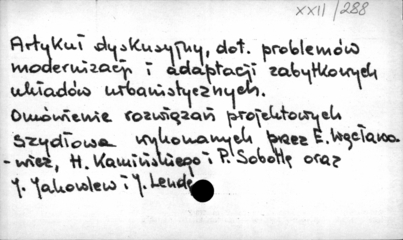 XXII/288
Artykuł dyskusyjny, dot. problemów
modernizacji i adaptacji zabytkowych
układów urbanistycznych.
Omówienie rozwiązań projektowych
Szydłowa wykonanych przez E. Węcława
-wicz, H. Kamińskiego i P. Sobottę oraz
J. Jakowlew i J. Lendę